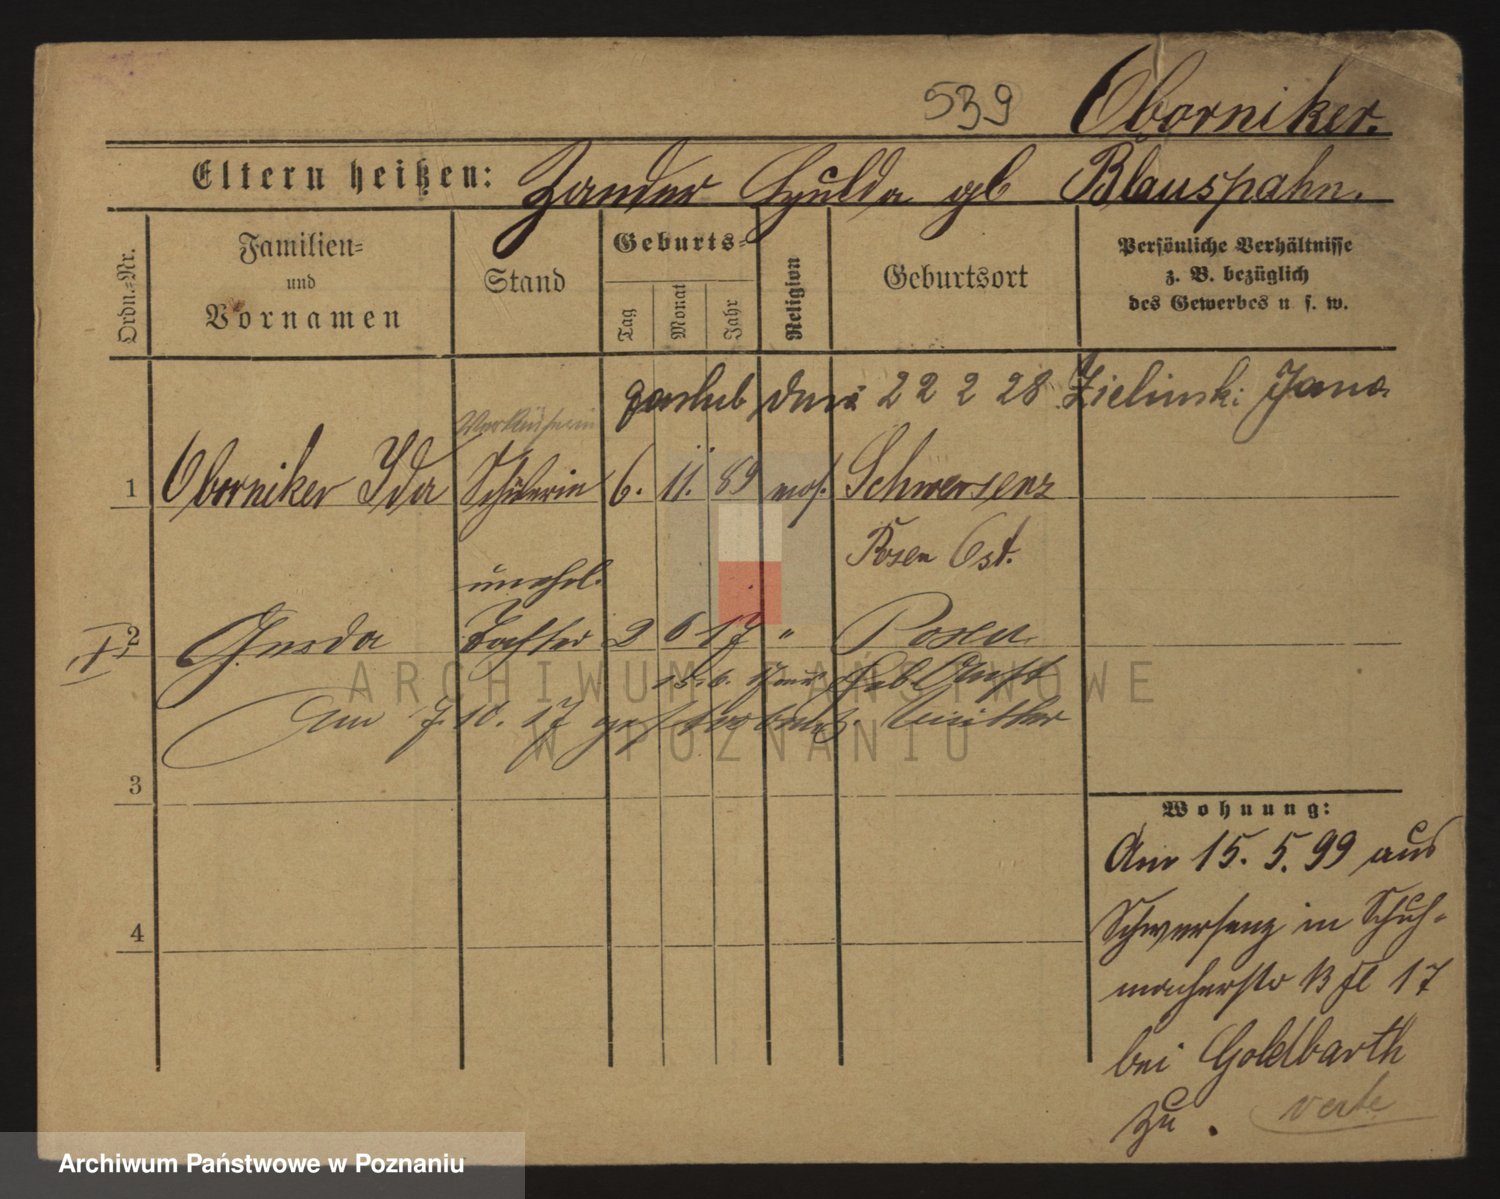 539 Oborniker.
Eltern heißen: Zander Hulda gb Blauspahn.
Ordn.-Nr.
Familien-
und
Vornamen
Stand
Geburts-
Tag
Monat
Jahr
Religion
Geburtsort
Persönliche Verhältnisse
z. B. bezüglich
des Gewerbes u s. w.
22 2 28 Zielinski Jana
Verkäuferin
1 Oborniker Ida Schülerin 6. 11. 89 mos. Schwersenz
Posen Ost.
unehel.
2 Gerda Tochter 2 6 17 " Posen
Am 7. 10. 17 gestorben. Mutter
3
4
Wohnung:
Am 15. 5. 99 aus
Schwersenz in Schuh-
macherstr 13 fl 17
bei Goldbarth
zu.
verte
ARCHIWUM PAŃSTWOWE
W POZNANIU
Archiwum Państwowe w Poznaniu